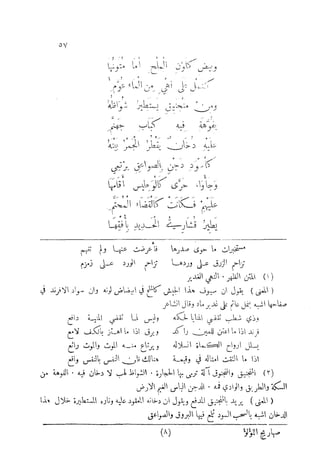 ٥٧
وبيض كلون الملح أما متونها
كنمل على نهي من الماء عوم
ومن منجنيق يستطير شواظه
بفوهة فيه كباب جهنم
عليه دخان يقطر الجمر بينه
كأسود دجن بالصواعق يرتمي
وجأواء حرى كالوطيس أقامها
عليهم فكانت كالقضاء المحتم
يطير شرار الحديد بأفقها
مستخبرات ما حوى صدرها فأعرضت عنها ولم تفهم
تزاحم الزرق على وردها تزاحم الورد على زمزم
(١) المتن الظهر . النهي الغدير
(المعنى) يقول ان سيوف هذا الجيش كالملح في ابيضاض لونه وان سواد الافرند في
صفاحها اشبه بنمل عائم على غدير ماء وقال الشاعر
وذي شطب تقضي المنايا لحكمه وليس لما تقضي المنية دافع
فرند اذا ما اعتن للعين راكد وبرق اذا ما اهتز بالكف لامع
يسلل ارواح الكماة انسلاله ويرتاع منه الموت والموت رائع
اذا ما التقت امثاله في وقيعة هنالك ظن النفس بالنفس واقع
(٢) المنجنيق والمنجنوق آلة ترمى بها الحجارة . الشواظ لهب لا دخان فيه . الفوهة من
السكة والطريق والوادي فمه . الدجن الباس الغيم الارض
(المعنى) يريد بالمنجنيق المدفع ويقول ان دخانه المعقود عليه وناره المستطيرة خلال هذا
الدخان اشبه بالسحب السود تلمع فيها البروق والصواعق
صهاريج اللؤلؤ (٨)